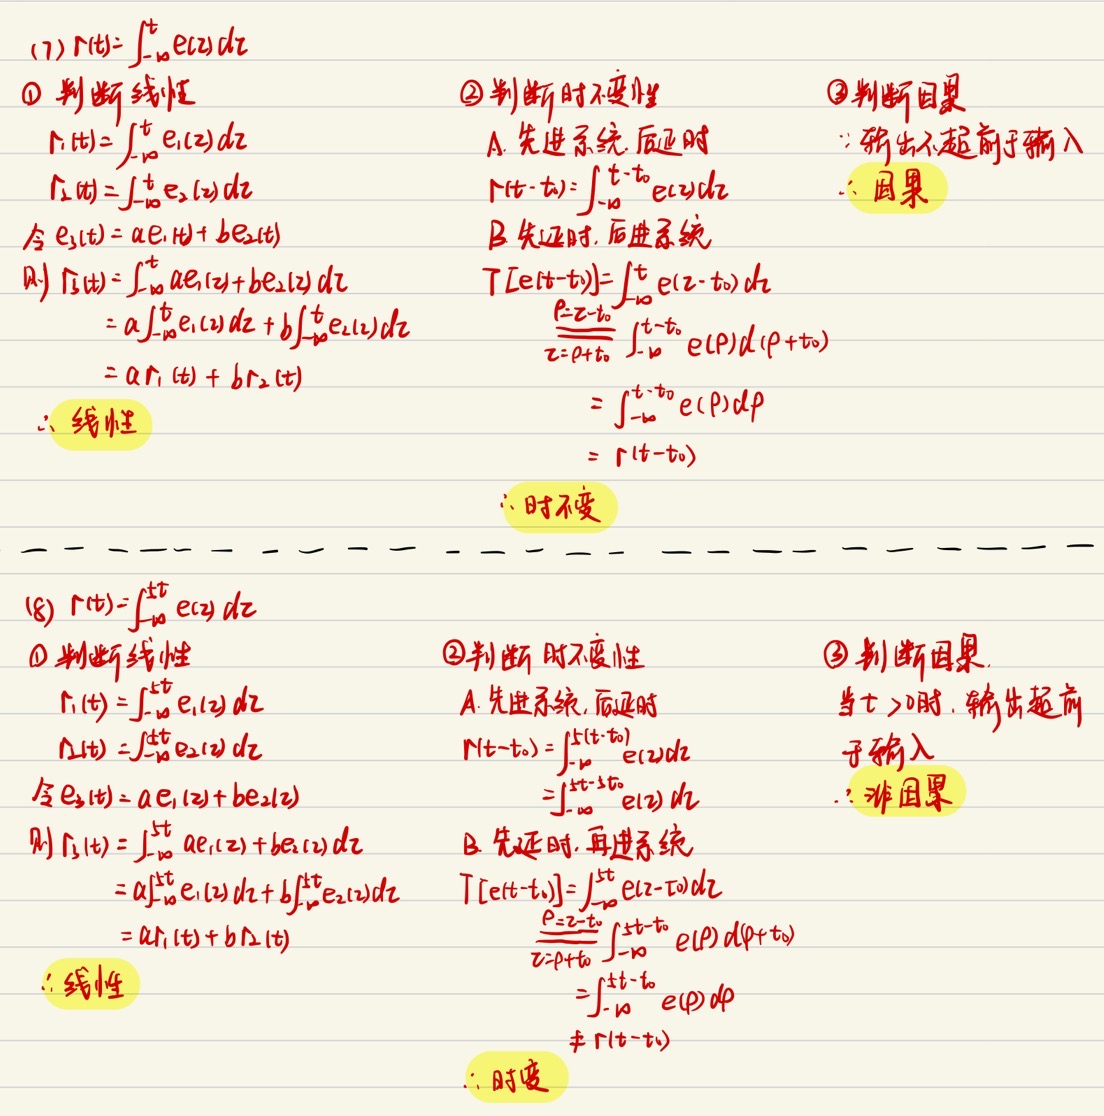 (7) r(t)=∫_{-∞}^{t} e(τ)dτ
① 判断线性
r₁(t)=∫_{-∞}^{t} e₁(τ)dτ
r₂(t)=∫_{-∞}^{t} e₂(τ)dτ
令 e₃(t)=ae₁(t)+be₂(t)
则 r₃(t)=∫_{-∞}^{t} ae₁(τ)+be₂(τ)dτ
=a∫_{-∞}^{t} e₁(τ)dτ+b∫_{-∞}^{t} e₂(τ)dτ
=ar₁(t)+br₂(t)
∴ 线性
② 判断时不变性
A. 先进系统,后延时
r(t-t₀)=∫_{-∞}^{t-t₀} e(τ)dτ
B. 先延时,后进系统
T[e(t-t₀)]=∫_{-∞}^{t} e(τ-t₀)dτ
ρ=τ-t₀
τ=ρ+t₀ ∫_{-∞}^{t-t₀} e(ρ)d(ρ+t₀)
=∫_{-∞}^{t-t₀} e(ρ)dρ
=r(t-t₀)
∴ 时不变
③ 判断因果
∵ 输出不超前于输入
∴ 因果
(8) r(t)=∫_{-∞}^{5t} e(τ)dτ
① 判断线性
r₁(t)=∫_{-∞}^{5t} e₁(τ)dτ
r₂(t)=∫_{-∞}^{5t} e₂(τ)dτ
令 e₃(t)=ae₁(τ)+be₂(τ)
则 r₃(t)=∫_{-∞}^{5t} ae₁(τ)+be₂(τ)dτ
=a∫_{-∞}^{5t} e₁(τ)dτ+b∫_{-∞}^{5t} e₂(τ)dτ
=ar₁(t)+br₂(t)
∴ 线性
② 判断时不变性
A. 先进系统,后延时
r(t-t₀)=∫_{-∞}^{5(t-t₀)} e(τ)dτ
=∫_{-∞}^{5t-5t₀} e(τ)dτ
B. 先延时,再进系统
T[e(t-t₀)]=∫_{-∞}^{5t} e(τ-τ₀)dτ
ρ=τ-t₀
τ=ρ+t₀ ∫_{-∞}^{5t-t₀} e(ρ)d(ρ+t₀)
=∫_{-∞}^{5t-t₀} e(ρ)dρ
≠r(t-t₀)
∴ 时变
③ 判断因果.
当t>0时,输出超前
于输入
∴ 非因果